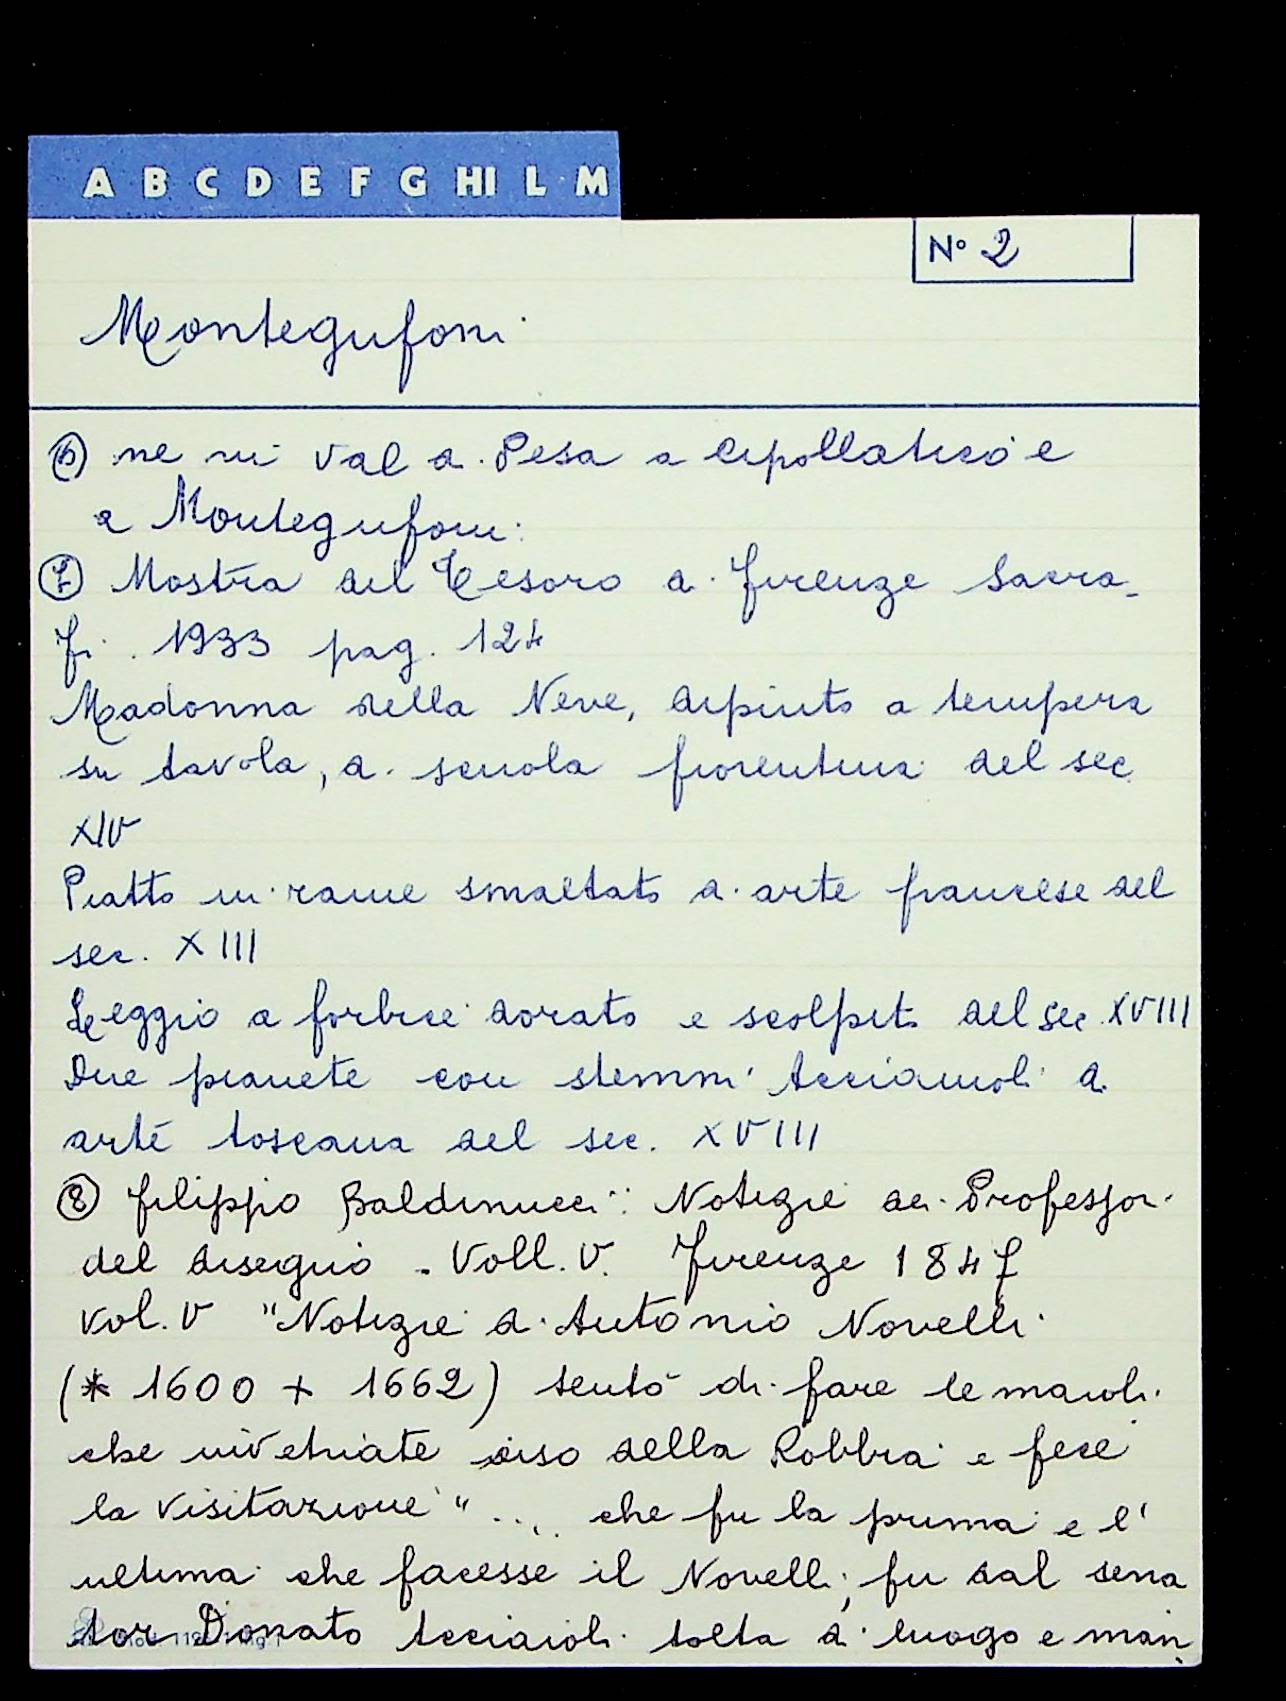 A B C D E F G HI L M
N° 2
Montegufoni
⑥ ne in Val di Pesa a Cipollatico e
a Montegufoni:
⑦ Mostra del Tesoro di Firenze Sacra.
Fi. 1933 pag. 124
Madonna della Neve, dipinto a tempera
su tavola, di scuola fiorentina del sec
XIV
Piatto in rame smaltato di arte francese del
sec. XIII
Leggio a forbice dorato e scolpito del sec. XVIII
Due pianete con stemmi Acciaiuoli di
arte toscana del sec. XVIII
⑧ Filippo Baldinucci: Notizie dei Professori
del disegno - Voll. V. Firenze 1847
vol. V "Notizie di Antonio Novelli
(* 1600 + 1662) tentò di fare le maioli
che invetriate uso della Robbia e fece
la Visitazione" .... che fu la prima e l'
ultima che facesse il Novelli, fu dal sena
tor Donato Acciaioli tolta di luogo e man